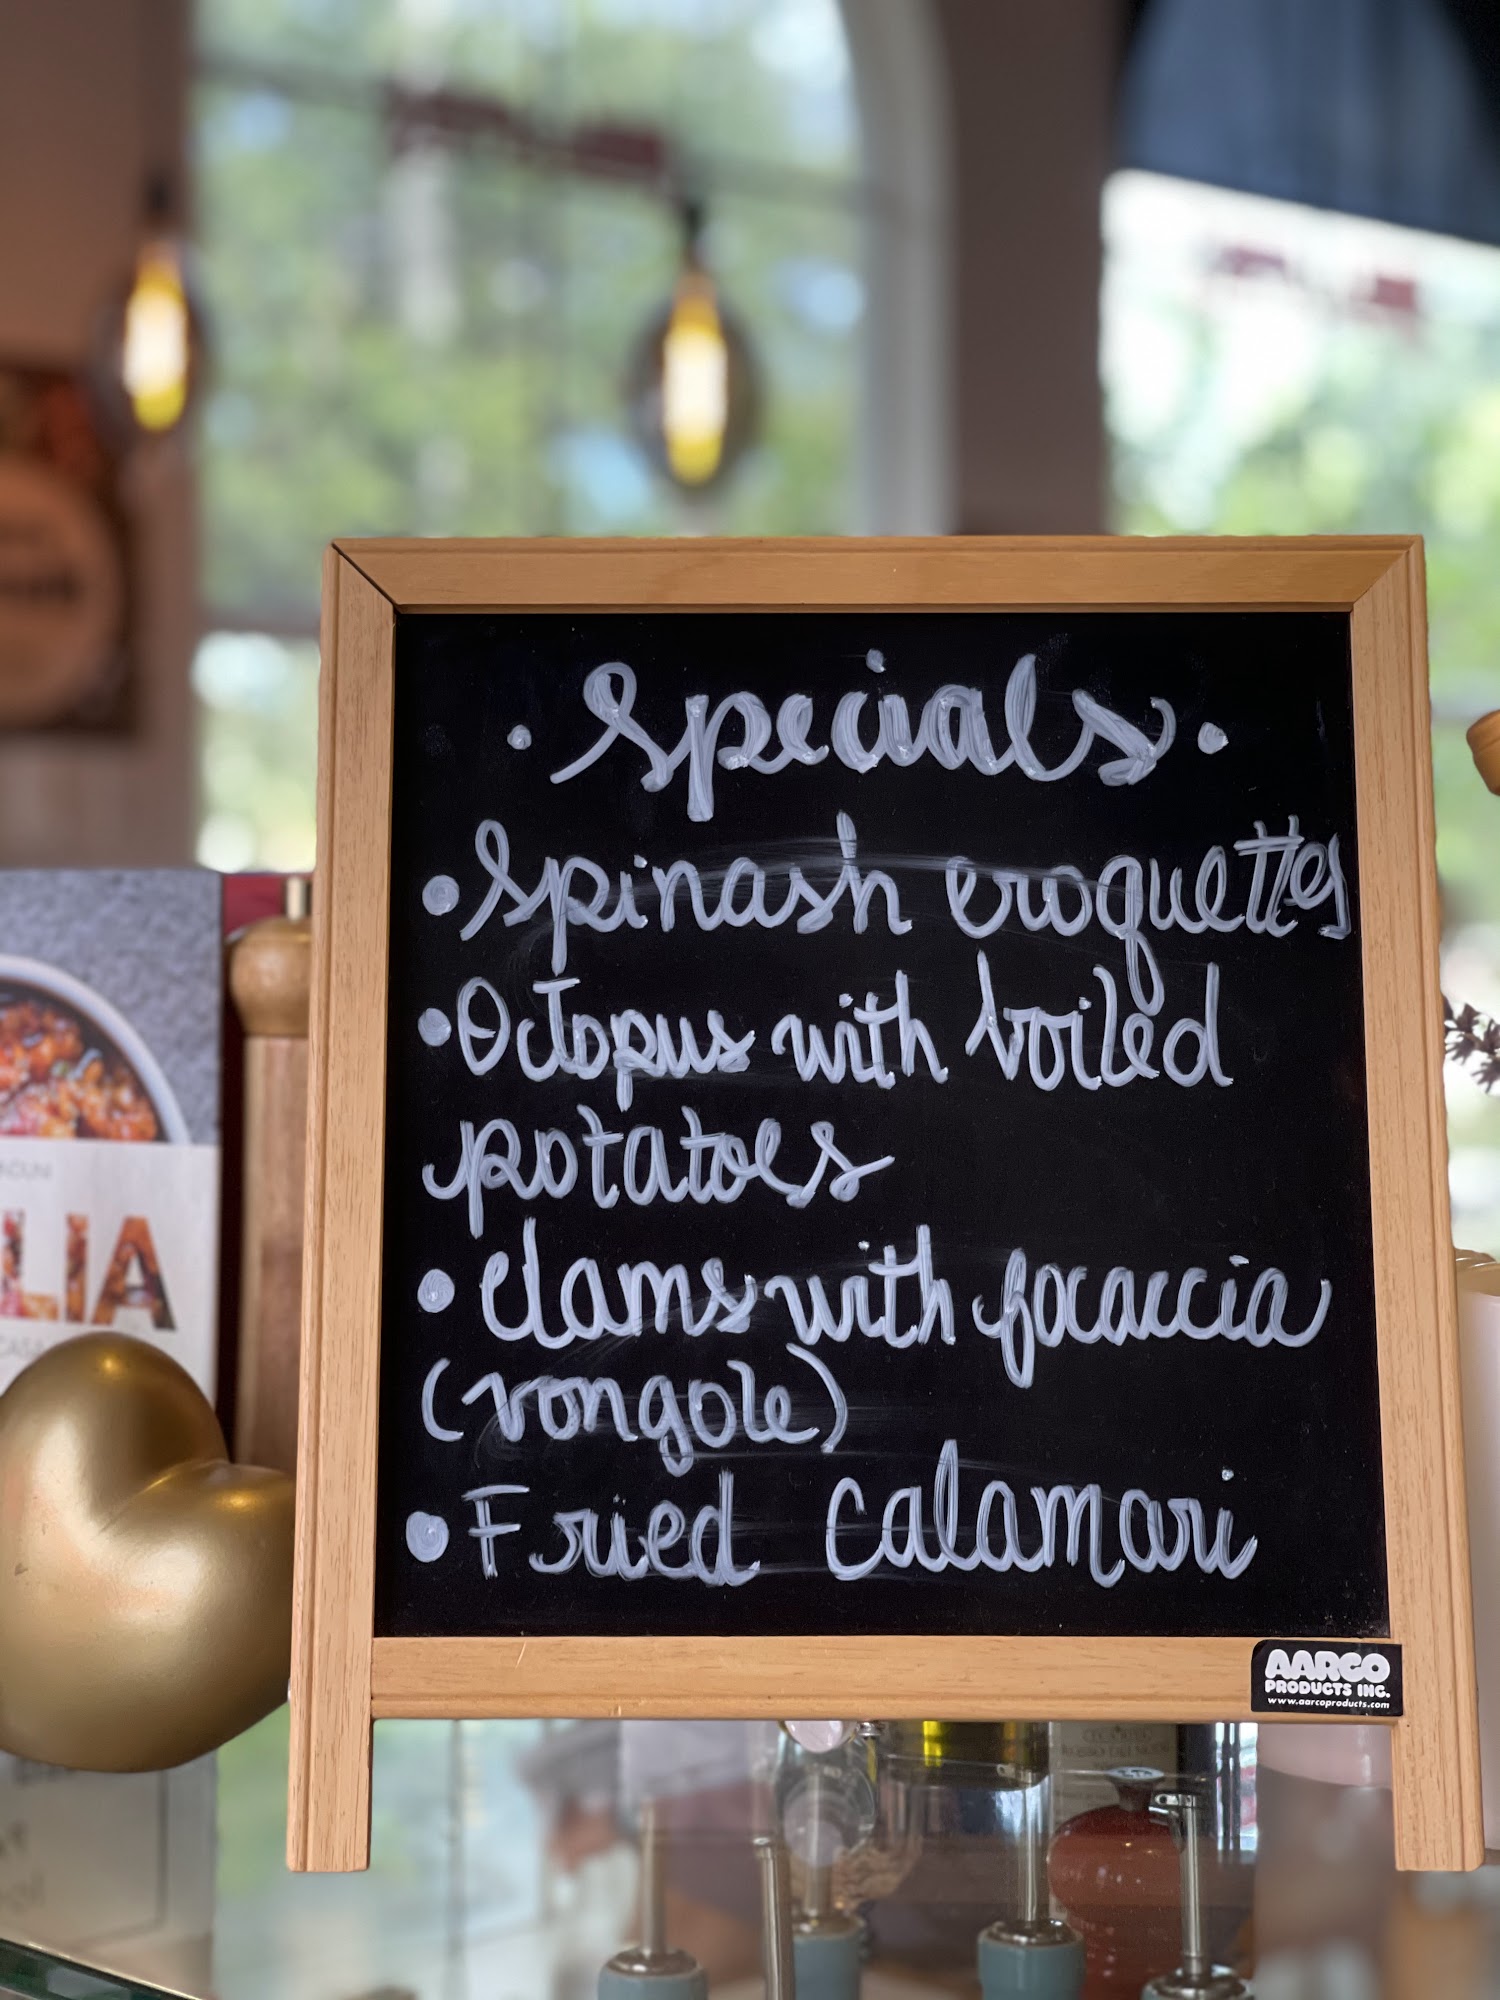 · Specials ·
• Spinash croquettes
• Octopus with boiled
potatoes
• Clams with focaccia
(vongole)
• Fried calamari
AARCO
PRODUCTS INC.
www.aarcoproducts.com
LIA
CASA